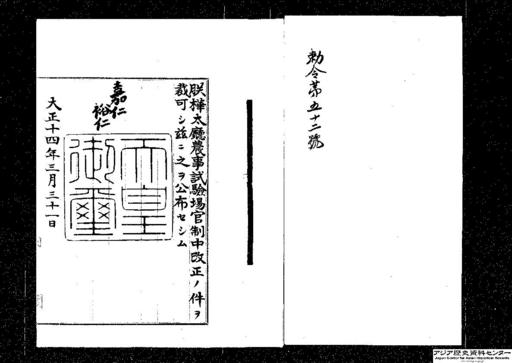 勅令第五十二號
朕樺太廳農事試驗場官制中改正ノ件ヲ
裁可シ茲ニ之ヲ公布セシム
嘉仁
裕仁
天皇
御璽
大正十四年三月三十一日
アジア歴史資料センター
Japan Center for Asian Historical Records